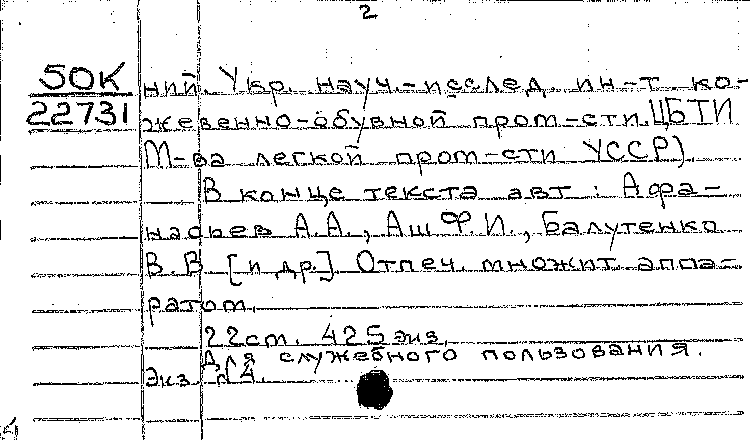 2
50К ний. Укр. науч.-исслед. ин-т ко-
22731 жевенно-обувной пром-сти. ЦБТИ
М-ва легкой пром-сти УССР).
В конце текста авт.: Афа-
насьев А.А., Аш Ф.И., Балутенко
В.В. [и др.] Отпеч. множит. аппа-
ратом.
22 ст. 425 экз.
Для служебного пользования.
Экз. №4.